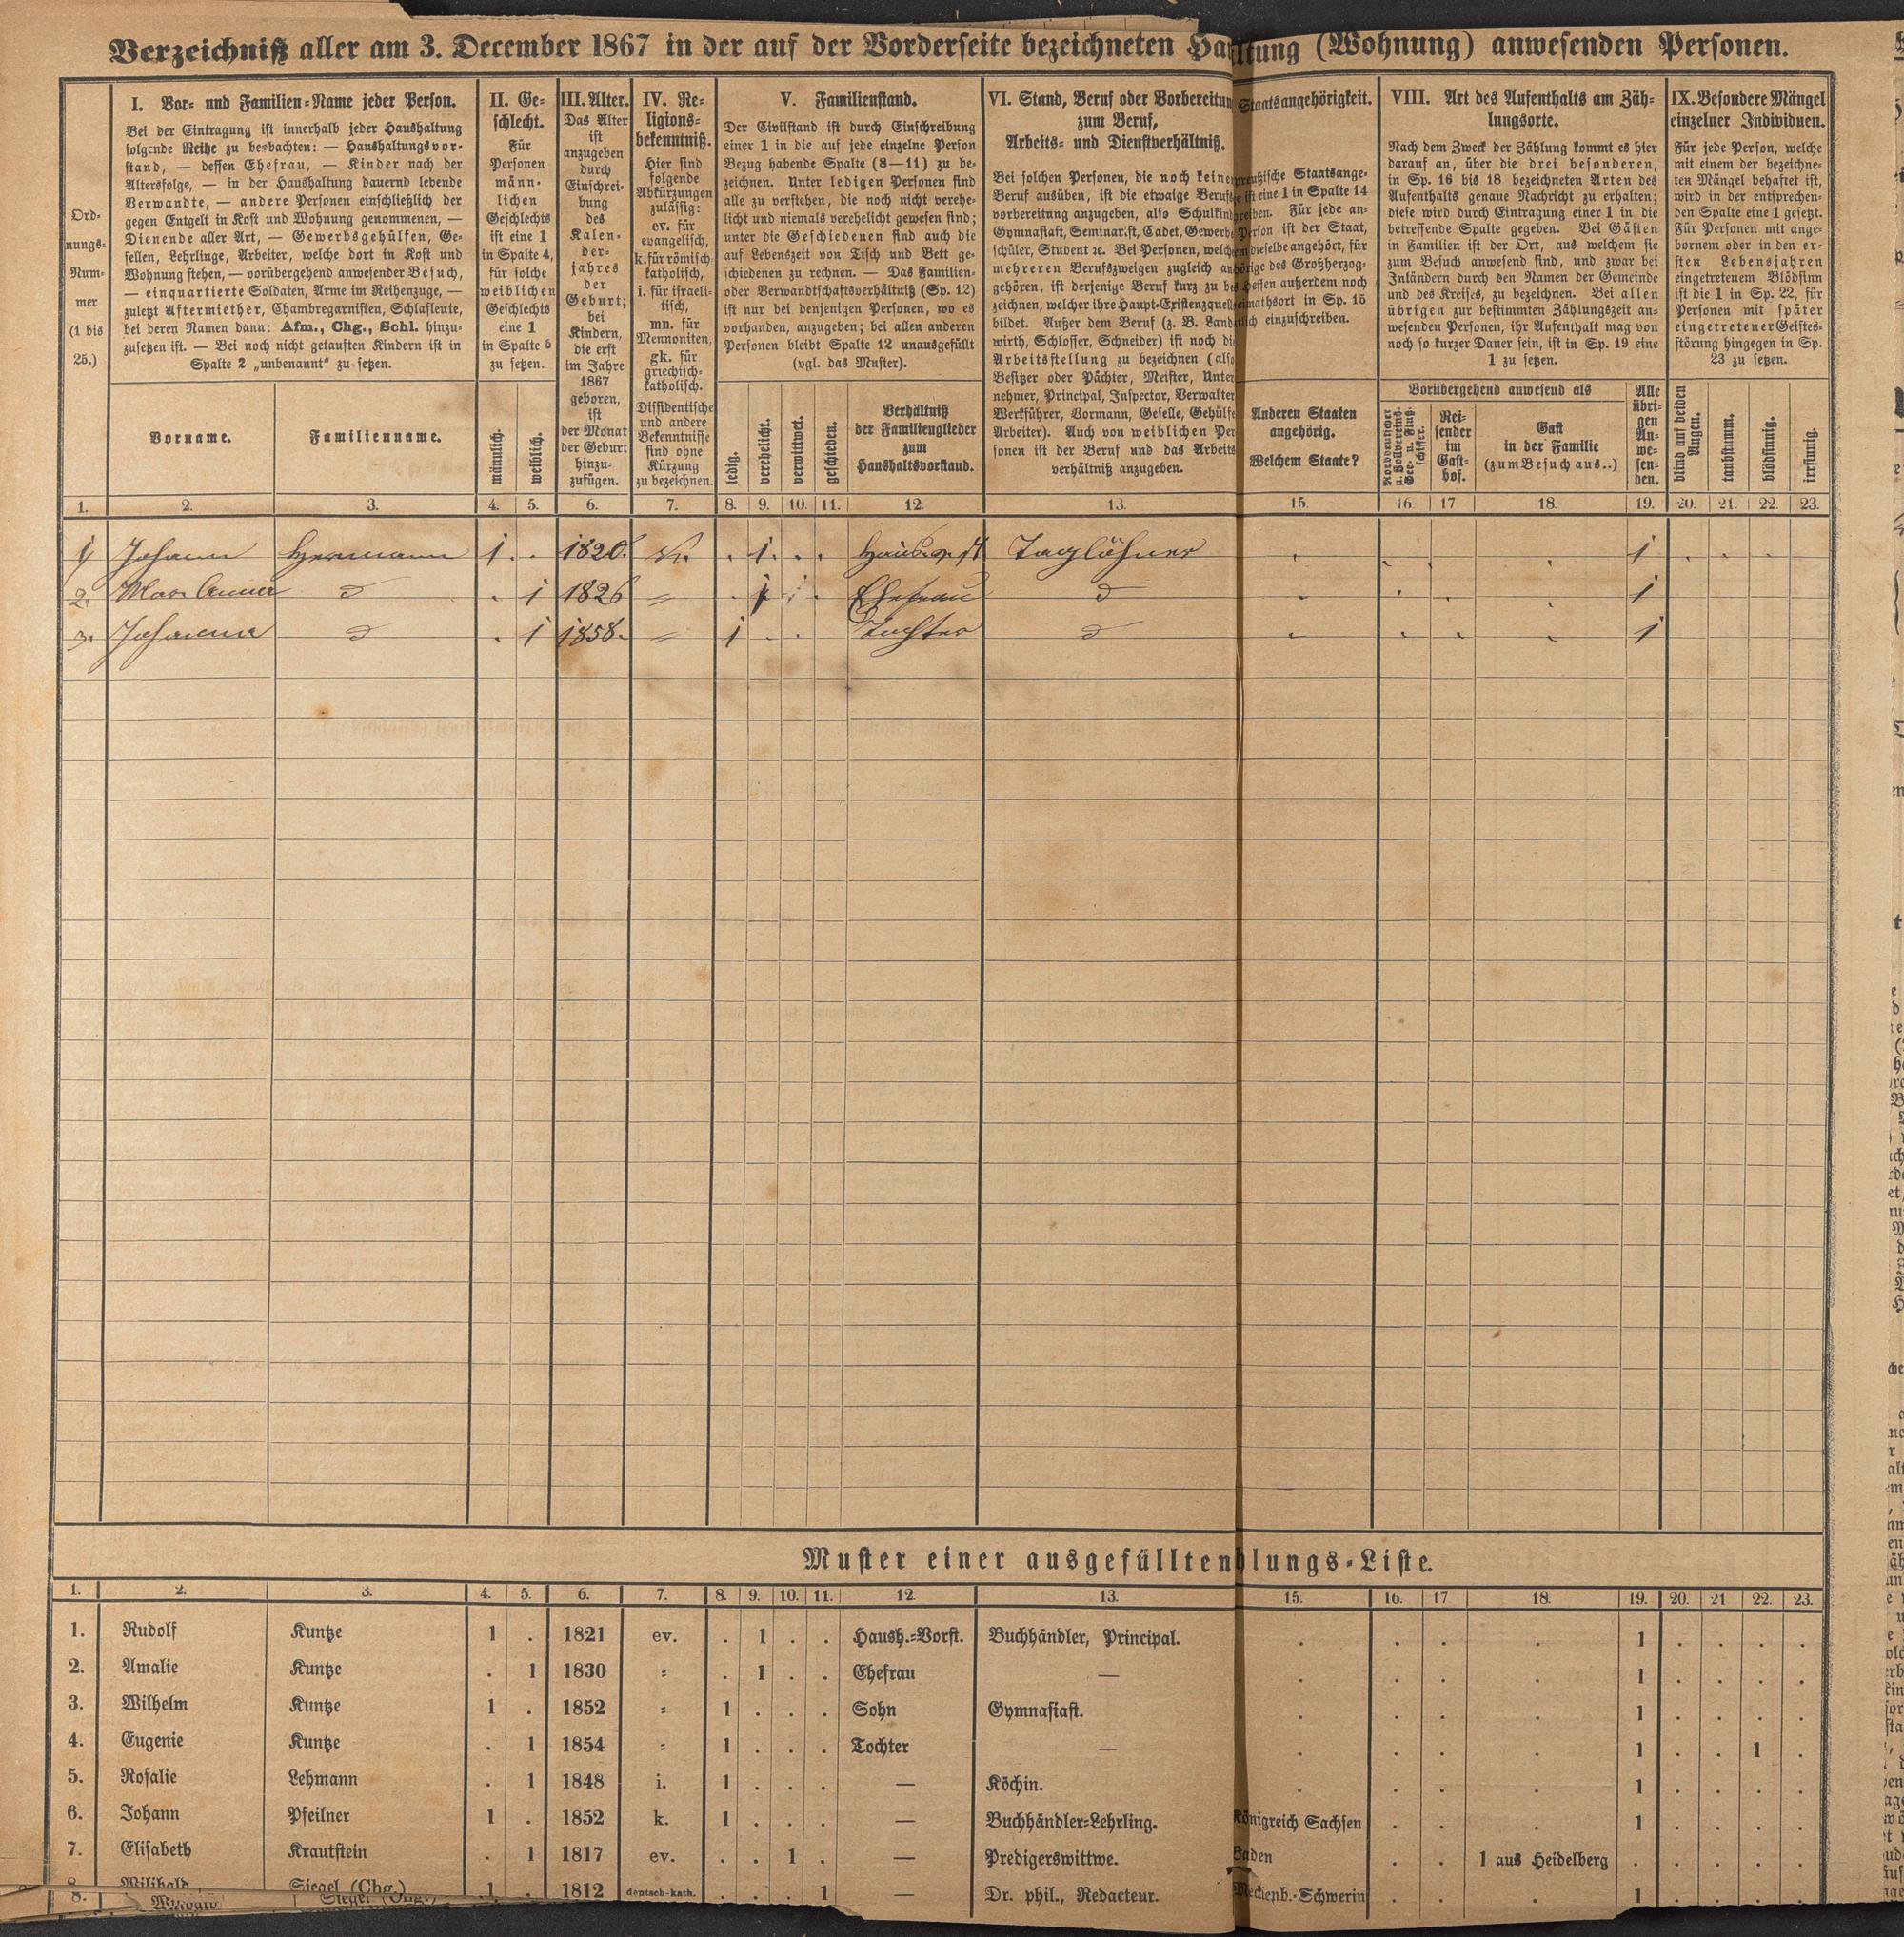 Verzeichniß aller am 3. December 1867 in der auf der Vorderseite bezeichneten Hau tung (Wohnung) anwesenden Personen.
Ord-
nungs-
Num-
mer
(1 bis
25.)
I. Vor- und Familien-Name jeder Person.
Bei der Eintragung ist innerhalb jeder Haushaltung
folgende Reihe zu beobachten: — Haushaltungsvor-
stand, — dessen Ehefrau, — Kinder nach der
Altersfolge, — in der Haushaltung dauernd lebende
Verwandte, — andere Personen einschließlich der
gegen Entgelt in Kost und Wohnung genommenen, —
Dienende aller Art, — Gewerbsgehülfen, Ge-
sellen, Lehrlinge, Arbeiter, welche dort in Kost und
Wohnung stehen, — vorübergehend anwesender Besuch,
— einquartierte Soldaten, Arme im Reihenzuge, —
zuletzt Aftermiether, Chambregarnisten, Schlafleute,
bei deren Namen dann: Afm., Chg., Schl. hinzu-
zusetzen ist. — Bei noch nicht getauften Kindern ist in
Spalte 2 „unbenannt“ zu setzen.
Vorname.
Familienname.
II. Ge-
schlecht.
Für
Personen
männ-
lichen
Geschlechts
ist eine 1
in Spalte 4,
für solche
weiblichen
Geschlechts
eine 1
in Spalte 5
zu setzen.
männlich.
weiblich.
III. Alter.
Das Alter
ist
anzugeben
durch
Einschrei-
bung
des
Kalen-
der-
jahres
der
Geburt;
bei
Kindern,
die erst
im Jahre
1867
geboren,
ist
der Monat
der Geburt
hinzu-
zufügen.
IV. Re-
ligions-
bekenntniß.
Hier sind
folgende
Abkürzungen
zulässig:
ev. für
evangelisch,
k. für römisch
katholisch,
i. für israeli-
tisch,
mn. für
Mennoniten,
gk. für
griechisch-
katholisch.
Dissidentische
und andere
Bekenntnisse
sind ohne
Kürzung
zu bezeichnen.
V. Familienstand.
Der Civilstand ist durch Einschreibung
einer 1 in die auf jede einzelne Person
Bezug habende Spalte (8—11) zu be-
zeichnen. Unter ledigen Personen sind
alle zu verstehen, die noch nicht verehe-
licht und niemals verehelicht gewesen sind;
unter die Geschiedenen sind auch die
auf Lebenszeit von Tisch und Bett ge-
schiedenen zu rechnen. — Das Familien-
oder Verwandtschaftsverhältniß (Sp. 12)
ist nur bei denjenigen Personen, wo es
vorhanden, anzugeben; bei allen anderen
Personen bleibt Spalte 12 unausgefüllt
(vgl. das Muster).
ledig.
verehelicht.
verwittwet.
geschieden.
Verhältniß
der Familienglieder
zum
Haushaltsvorstand.
VI. Stand, Beruf oder Vorbereitun
zum Beruf,
Arbeits- und Dienstverhältniß.
Bei solchen Personen, die noch keine
Beruf ausüben, ist die etwaige Berufs
vorbereitung anzugeben, also Schulkind
Gymnasiast, Seminarist, Cadet, Gewerb
schüler, Student ꝛc. Bei Personen, welche
mehreren Berufszweigen zugleich an
gehören, ist derjenige Beruf kurz zu be
zeichnen, welcher ihre Haupt-Existenzquelle
bildet. Außer dem Beruf (z. B. Land
wirth, Schlosser, Schneider) ist noch di
Arbeitsstellung zu bezeichnen (also
Besitzer oder Pächter, Meister, Unter
nehmer, Principal, Inspector, Verwalter
Werkführer, Vormann, Geselle, Gehülfe
Arbeiter). Auch von weiblichen Per
sonen ist der Beruf und das Arbeits
verhältniß anzugeben.
Staatsangehörigkeit.
preußische Staatsange-
e ist eine 1 in Spalte 14
reiben. Für jede an-
Person ist der Staat,
m dieselbe angehört, für
hörige des Großherzog-
Hessen außerdem noch
eimathsort in Sp. 15
tlich einzuschreiben.
Anderen Staaten
angehörig.
Welchem Staate?
VIII. Art des Aufenthalts am Zäh-
lungsorte.
Nach dem Zweck der Zählung kommt es hier
darauf an, über die drei besonderen,
in Sp. 16 bis 18 bezeichneten Arten des
Aufenthalts genaue Nachricht zu erhalten;
diese wird durch Eintragung einer 1 in die
betreffende Spalte gegeben. Bei Gästen
in Familien ist der Ort, aus welchem sie
zum Besuch anwesend sind, und zwar bei
Inländern durch den Namen der Gemeinde
und des Kreises, zu bezeichnen. Bei allen
übrigen zur bestimmten Zählungszeit an-
wesenden Personen, ihr Aufenthalt mag von
noch so kurzer Dauer sein, ist in Sp. 19 eine
1 zu setzen.
Vorübergehend anwesend als
Norddeutscher
u. Zollvereins-
See- u. Fluß-
schiffer.
Rei-
sender
im
Gast-
hof.
Gast
in der Familie
(zum Besuch aus..)
Alle
übri-
gen
An-
we-
sen-
den.
IX. Besondere Mängel
einzelner Individuen.
Für jede Person, welche
mit einem der bezeichne-
ten Mängel behaftet ist,
wird in der entsprechen-
den Spalte eine 1 gesetzt.
Für Personen mit ange-
bornem oder in den er-
sten Lebensjahren
eingetretenem Blödsinn
ist die 1 in Sp. 22, für
Personen mit später
eingetretener Geistes-
störung hingegen in Sp.
23 zu setzen.
blind auf beiden
Augen.
taubstumm.
blödsinnig.
irrsinnig.
1. 2. 3. 4. 5. 6. 7. 8. 9. 10. 11. 12. 13. 15. 16. 17 18. 19. 20. 21. 22. 23.
1 Johann Hermann 1 . 1820. . 1 . . Taglöhner . . . 1 . . .
2. d . 1 1826 = . 1 . Ehefrau d . . . . 1
3. Johanna d . 1 1858. = 1 . . Tochter d . . . . 1
Muster einer ausgefüllten hlungs-Liste.
1. 2. 3. 4. 5. 6. 7. 8. 9. 10. 11. 12. 13. 15. 16. 17 18. 19. 20. 21 22. 23.
1. Rudolf Kuntze 1 . 1821 ev. . 1 . . Haush.-Vorst. Buchhändler, Principal. . . . . 1 . . . .
2. Amalie Kuntze . 1 1830 = . 1 . . Ehefrau — . . . . 1 . . . .
3. Wilhelm Kuntze 1 . 1852 = 1 . . . Sohn Gymnasiast. . . . . 1 . . . .
4. Eugenie Kuntze . 1 1854 = 1 . . . Tochter — . . . . 1 . . 1 .
5. Rosalie Lehmann . 1 1848 i. 1 . . . — Köchin. . . . . 1 . . . .
6. Johann Pfeilner 1 . 1852 k. 1 . . . — Buchhändler-Lehrling. Königreich Sachsen . . . 1 . . . .
7. Elisabeth Krautstein . 1 1817 ev. . . 1 . — Predigerswittwe. Baden . . 1 aus Heidelberg . . . . .
8. Siegel (Chg.) 1 . 1812 deutsch-kath. . . . 1 — Dr. phil., Redacteur. Mecklenb.-Schwerin . . . 1 . . . .